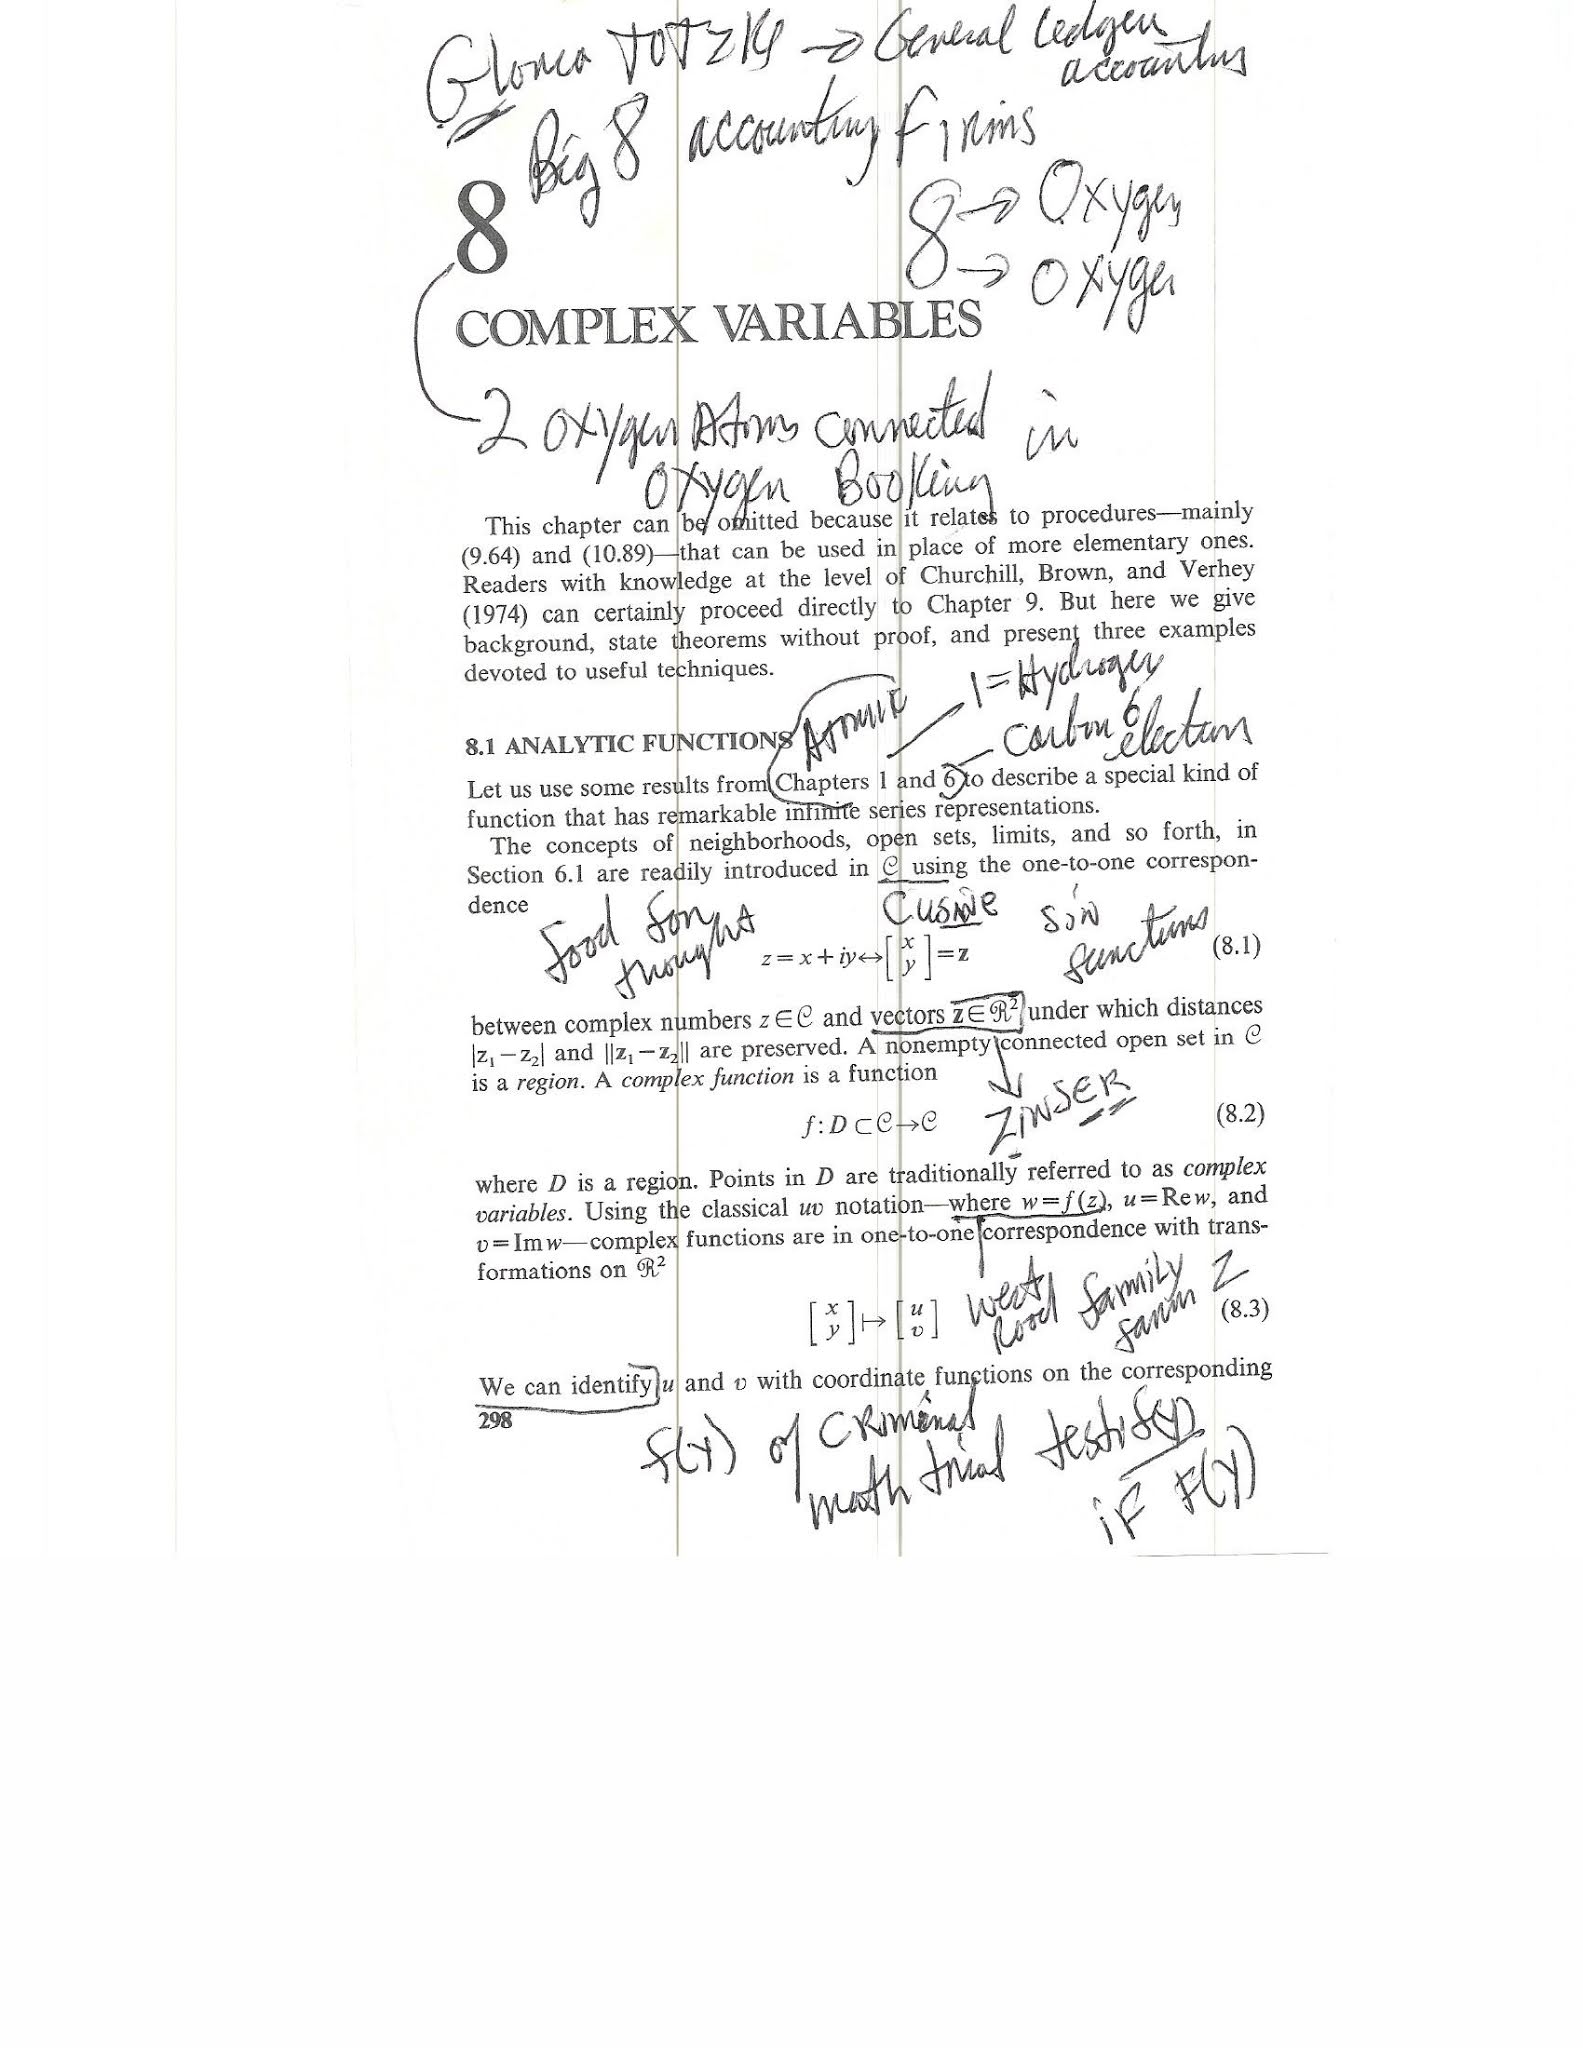 Glonca TOTZKY → General Ledger
accounting
Big 8 accounting Firms
8 → Oxygen
8 → Oxygen
8
COMPLEX VARIABLES
2 Oxygen Atoms connected in
Oxygen Booking
This chapter can be omitted because it relates to procedures—mainly
(9.64) and (10.89)—that can be used in place of more elementary ones.
Readers with knowledge at the level of Churchill, Brown, and Verhey
(1974) can certainly proceed directly to Chapter 9. But here we give
background, state theorems without proof, and present three examples
devoted to useful techniques.
1 = Hydrogen
Atomic
Carbon 6
electrons
8.1 ANALYTIC FUNCTIONS
Let us use some results from Chapters 1 and 6 to describe a special kind of
function that has remarkable infinite series representations.
The concepts of neighborhoods, open sets, limits, and so forth, in
Section 6.1 are readily introduced in 𝒞 using the one-to-one correspon-
dence
food for
thought
Cusine
sin
functions
z = x + iy ↔ [x y] = z (8.1)
between complex numbers z ∈ 𝒞 and vectors z ∈ ℛ² under which distances
|z₁ − z₂| and ||z₁ − z₂|| are preserved. A nonempty connected open set in 𝒞
is a region. A complex function is a function
ZINSER
f : D ⊂ 𝒞 → 𝒞 (8.2)
where D is a region. Points in D are traditionally referred to as complex
variables. Using the classical uv notation—where w = f(z), u = Re w, and
v = Im w—complex functions are in one-to-one correspondence with trans-
formations on ℛ²
[x y] ↦ [u v] (8.3)
West family Z
Road farm
We can identify u and v with coordinate functions on the corresponding
298
f(y) of Criminal
math trial testify
iF F(y)